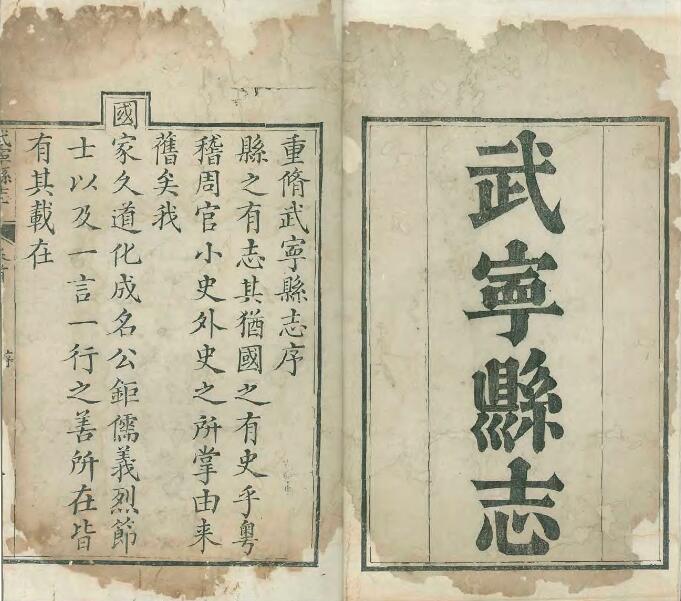 武寧縣志
重脩武寧縣志序
縣之有志其猶國之有史乎粤
稽周官小史外史之所掌由来
舊矣我
國家久道化成名公鉅儒義烈節
士以及一言一行之善所在皆
有其載在
武寧縣志
序